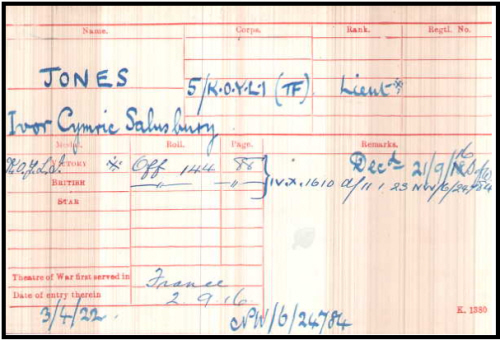 Name. Corps. Rank. Regtl. No.
JONES 5/K.O.Y.L.I (TF). Lieut *
Ivor Cymric Salusbury
Medal. Roll. Page. Remarks.
K.O.Y.L.I. VICTORY * Off 144 Decd 21/9/16
BRITISH —"— —"— IV.X.1610 d/11.1.23 NW/6/24784
STAR
Theatre of War first served in France
Date of entry therein 2.9.16
3/4/22. NW/6/24784 K. 1380